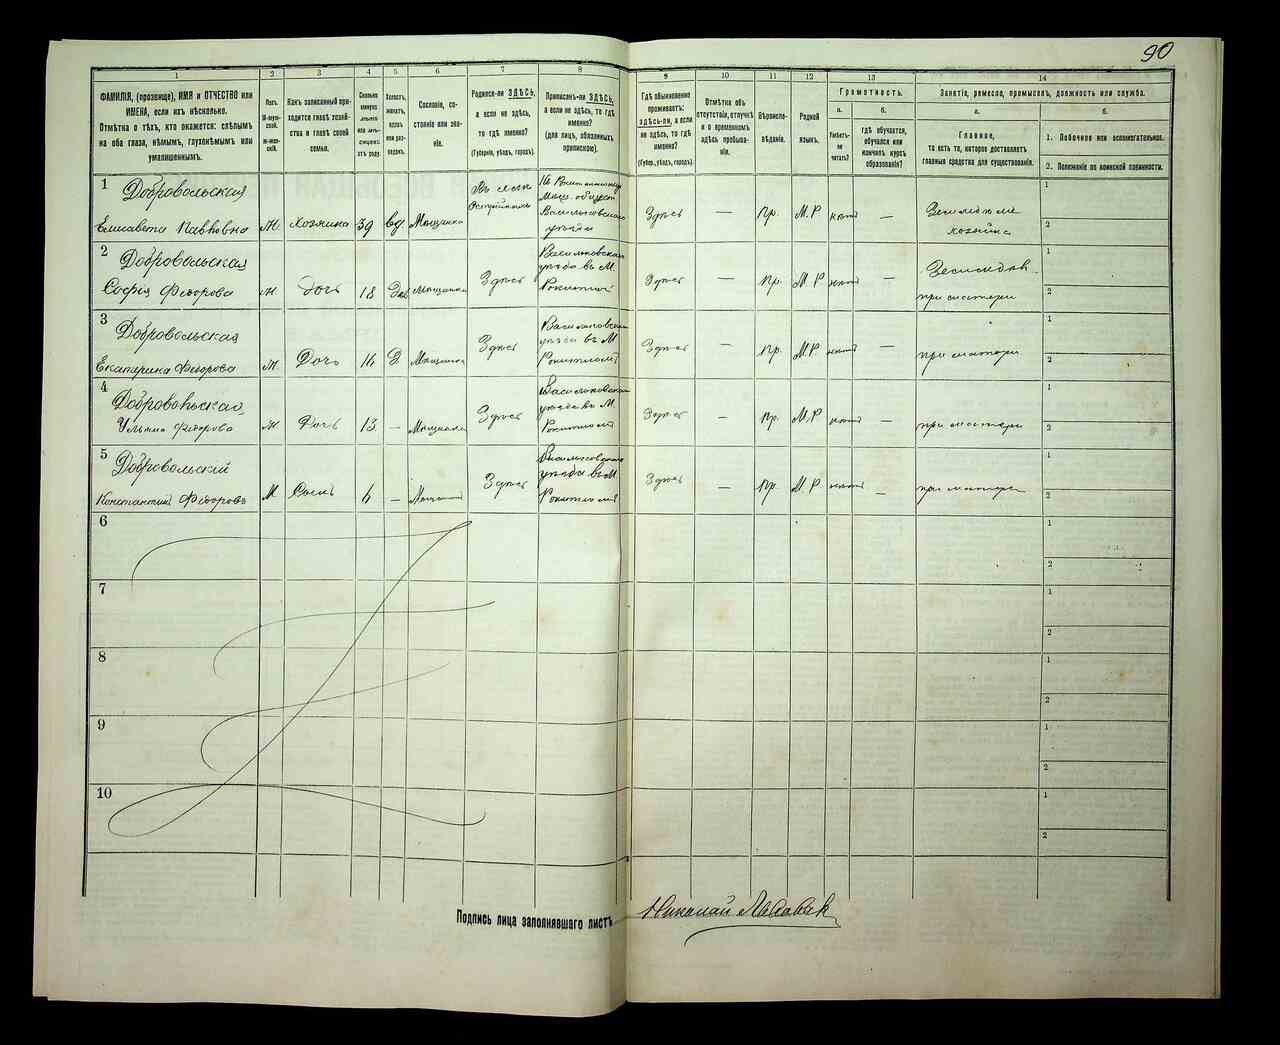 90
1 2 3 4 5 6 7 8 9 10 11 12 13 14
ФАМИЛІЯ, (прозвище), ИМЯ и ОТЧЕСТВО или
ИМЕНА, если ихъ нѣсколько.
Отмѣтка о тѣхъ, кто окажется: слѣпымъ
на оба глаза, нѣмымъ, глухонѣмымъ или
умалишеннымъ.
Полъ.
М-муж-
ской.
Ж-жен-
скій.
Какъ записанный при-
ходится главѣ хозяй-
ства и главѣ своей
семьи.
Сколько
минуло
лѣтъ
или мѣ-
сяцевъ
отъ роду.
Холостъ,
женатъ,
вдовъ
или раз-
веденъ.
Сословіе, со-
стояніе или зва-
ніе.
Родился-ли ЗДѢСЬ,
а если не здѣсь,
то гдѣ именно?
(Губернія, уѣздъ, городъ).
Приписанъ-ли ЗДѢСЬ,
а если не здѣсь, то гдѣ
именно?
(для лицъ, обязанныхъ
припискою).
Гдѣ обыкновенно
проживаетъ:
здѣсь-ли, а если
не здѣсь, то гдѣ
именно?
(Губер., уѣздъ, городъ).
Отмѣтка объ
отсутствіи, отлучкѣ
и о временномъ
здѣсь пребыва-
ніи.
Вѣроиспо-
вѣданіе.
Родной
языкъ.
Грамотность.
а.
Умѣетъ-
ли
читать?
б.
гдѣ обучается,
обучался или
кончилъ курсъ
образованія?
Занятіе, ремесло, промыселъ, должность или служба.
а.
Главное,
то есть то, которое доставляетъ
главныя средства для существованія.
б.
1. Побочное или вспомогательное.
2. Положеніе по воинской повинности.
1 Добровольская
Елисавета Павловна Ж. Хозяйка 39 вд. Мѣщанка
Здѣсь — Пр. М.Р нѣтъ —
хозяйка
1
2
2 Добровольская
Софія Федорова Ж. Дочь 18 Мѣщанка Здѣсь
Васильковскаго
уѣзда въ М.
Здѣсь — Пр. М.Р нѣтъ —
при матери
1
2
3 Добровольская
Екатерина Федорова Ж. Дочь 14 Д Мѣщанка Здѣсь
Васильковскаго
уѣзда въ М.
Здѣсь — Пр. М.Р нѣтъ —
при матери
1
2
4 Добровольская
Ульяна Федорова Ж. Дочь 13 — Мѣщанка Здѣсь
Васильковскаго
уѣзда въ М.
Здѣсь — Пр. М.Р нѣтъ —
при матери
1
2
5 Добровольскій
Константинъ Федоровъ М Сынъ 6 — Здѣсь
Васильковскаго
уѣзда въ М.
Здѣсь — Пр. М.Р нѣтъ —
при матери
1
2
6
1
2
7
1
2
8
1
2
9
1
2
10
1
2
Подпись лица заполнявшаго листъ Николай